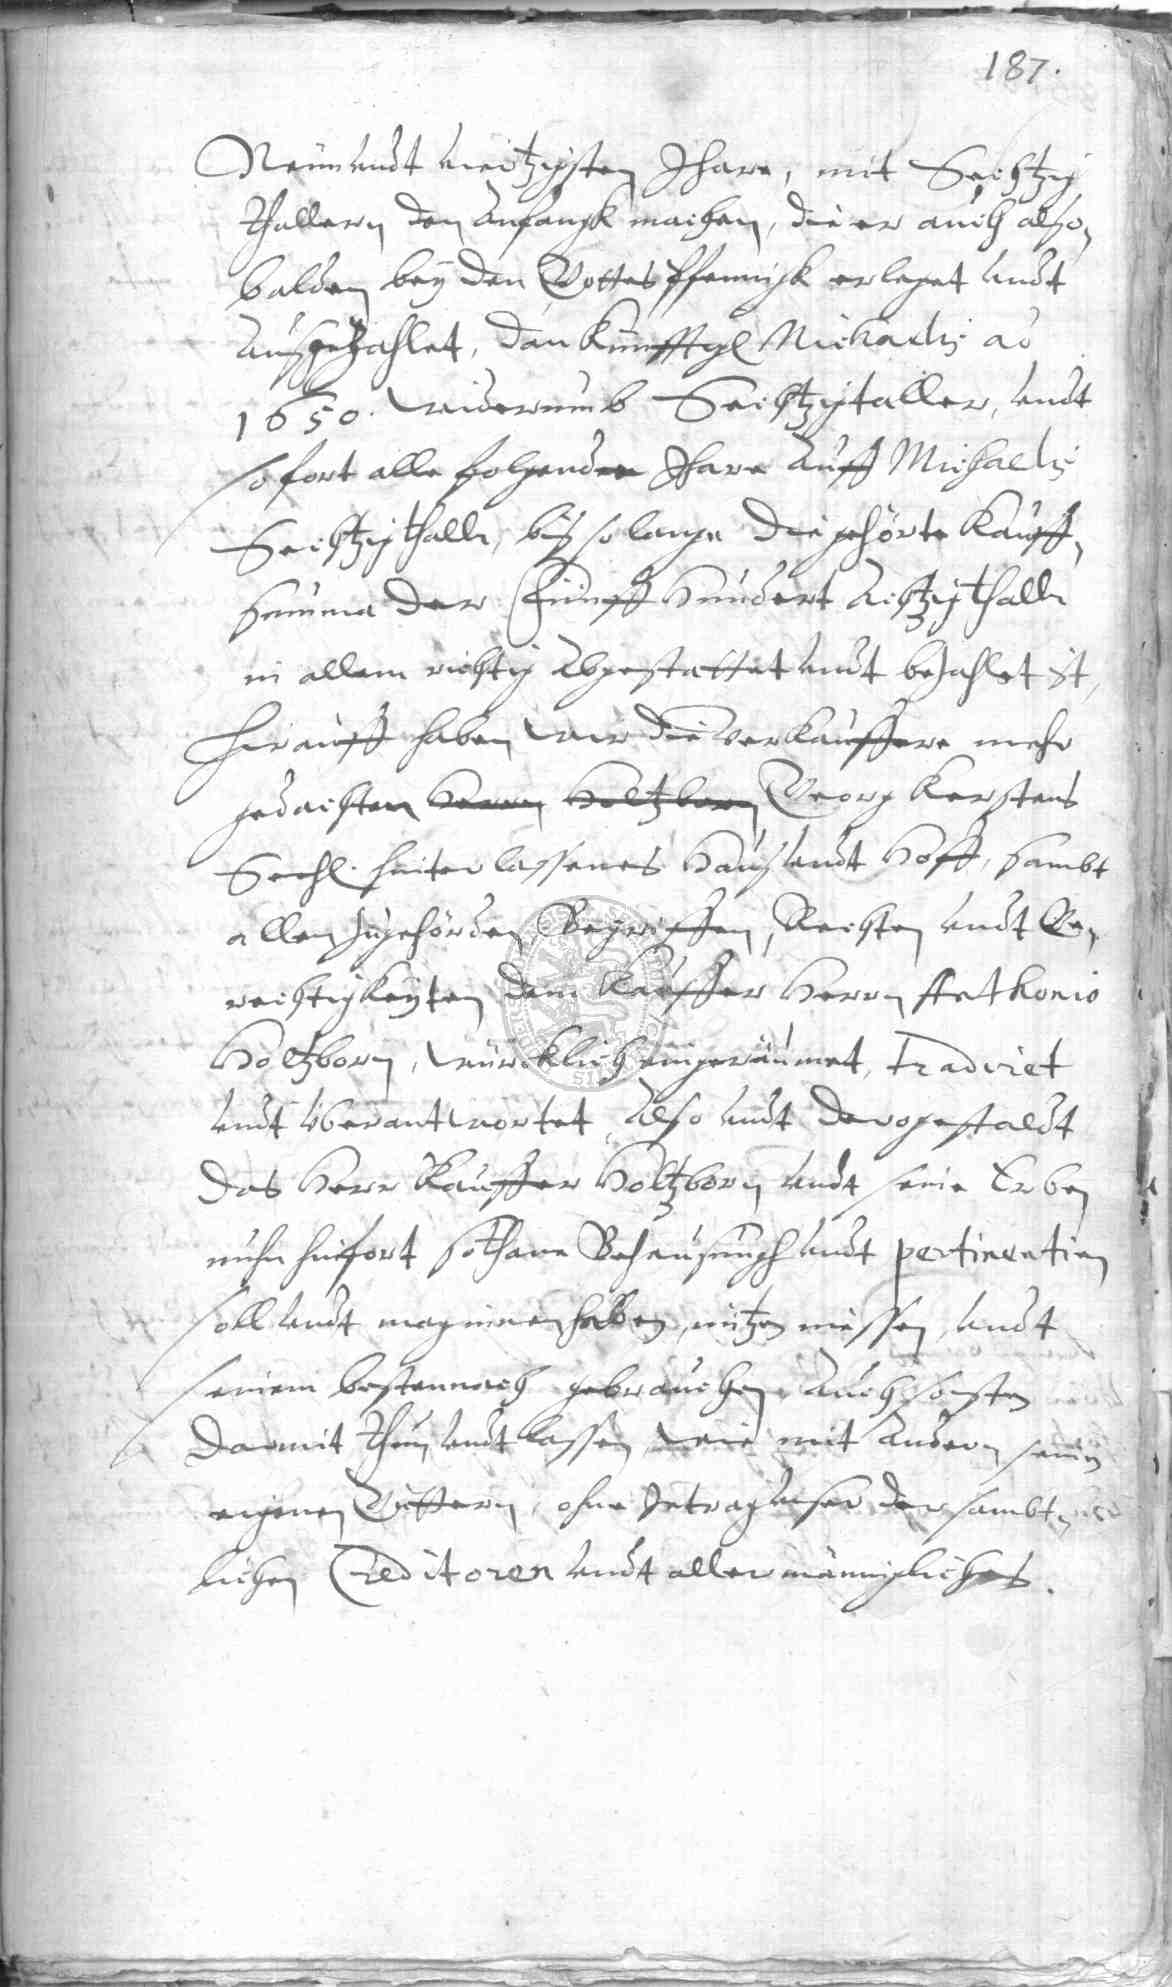 187.
Neun undt viertzigsten Jhare, mit Sechtzig
thallern den anfangk machen, die er auch also,
balden bey den Gottes pfennigk erleget undt
außgezahlet, dan künfftigl Michaelis ao
1650. widerumb Sechtzigtaller, undt
so fort alle folgenden Jhare auff Michaelis
Sechtzigthallr, biß so lange die gehörte Kauff,
summa der Fünff hundert Achtzigthallr
in allem richtig abgestattet undt bezahlet ist,
Hirauff haben wir die verkauffere mehr
gedachten Herrn Holtzborn Georg Kerstens
Seehl. hinterlassenes Hauß undt Hoff, sambt
allen zugehörden, Begriffen, Rechten undt Ge,
rechtigkeyten dem Kauffer Herrn
Holtzborn, würcklich eingeräumet, tradiret
undt überantwortet, Also undt derogestaldt
das Herr Kauffer Holtzborn undt seine Erben
nuhn hinfort sothane Behausungh undt pertinentien
soll undt mag innen haben, nützen niessen, undt
seinem besten nach gebrauchen, Auch sonsten
darmit thun undt lassen, wie mit andern seinen
eigenen Güttern, ohne Intrag unser der sambt,
lichen Creditoren undt allermänniglichs.